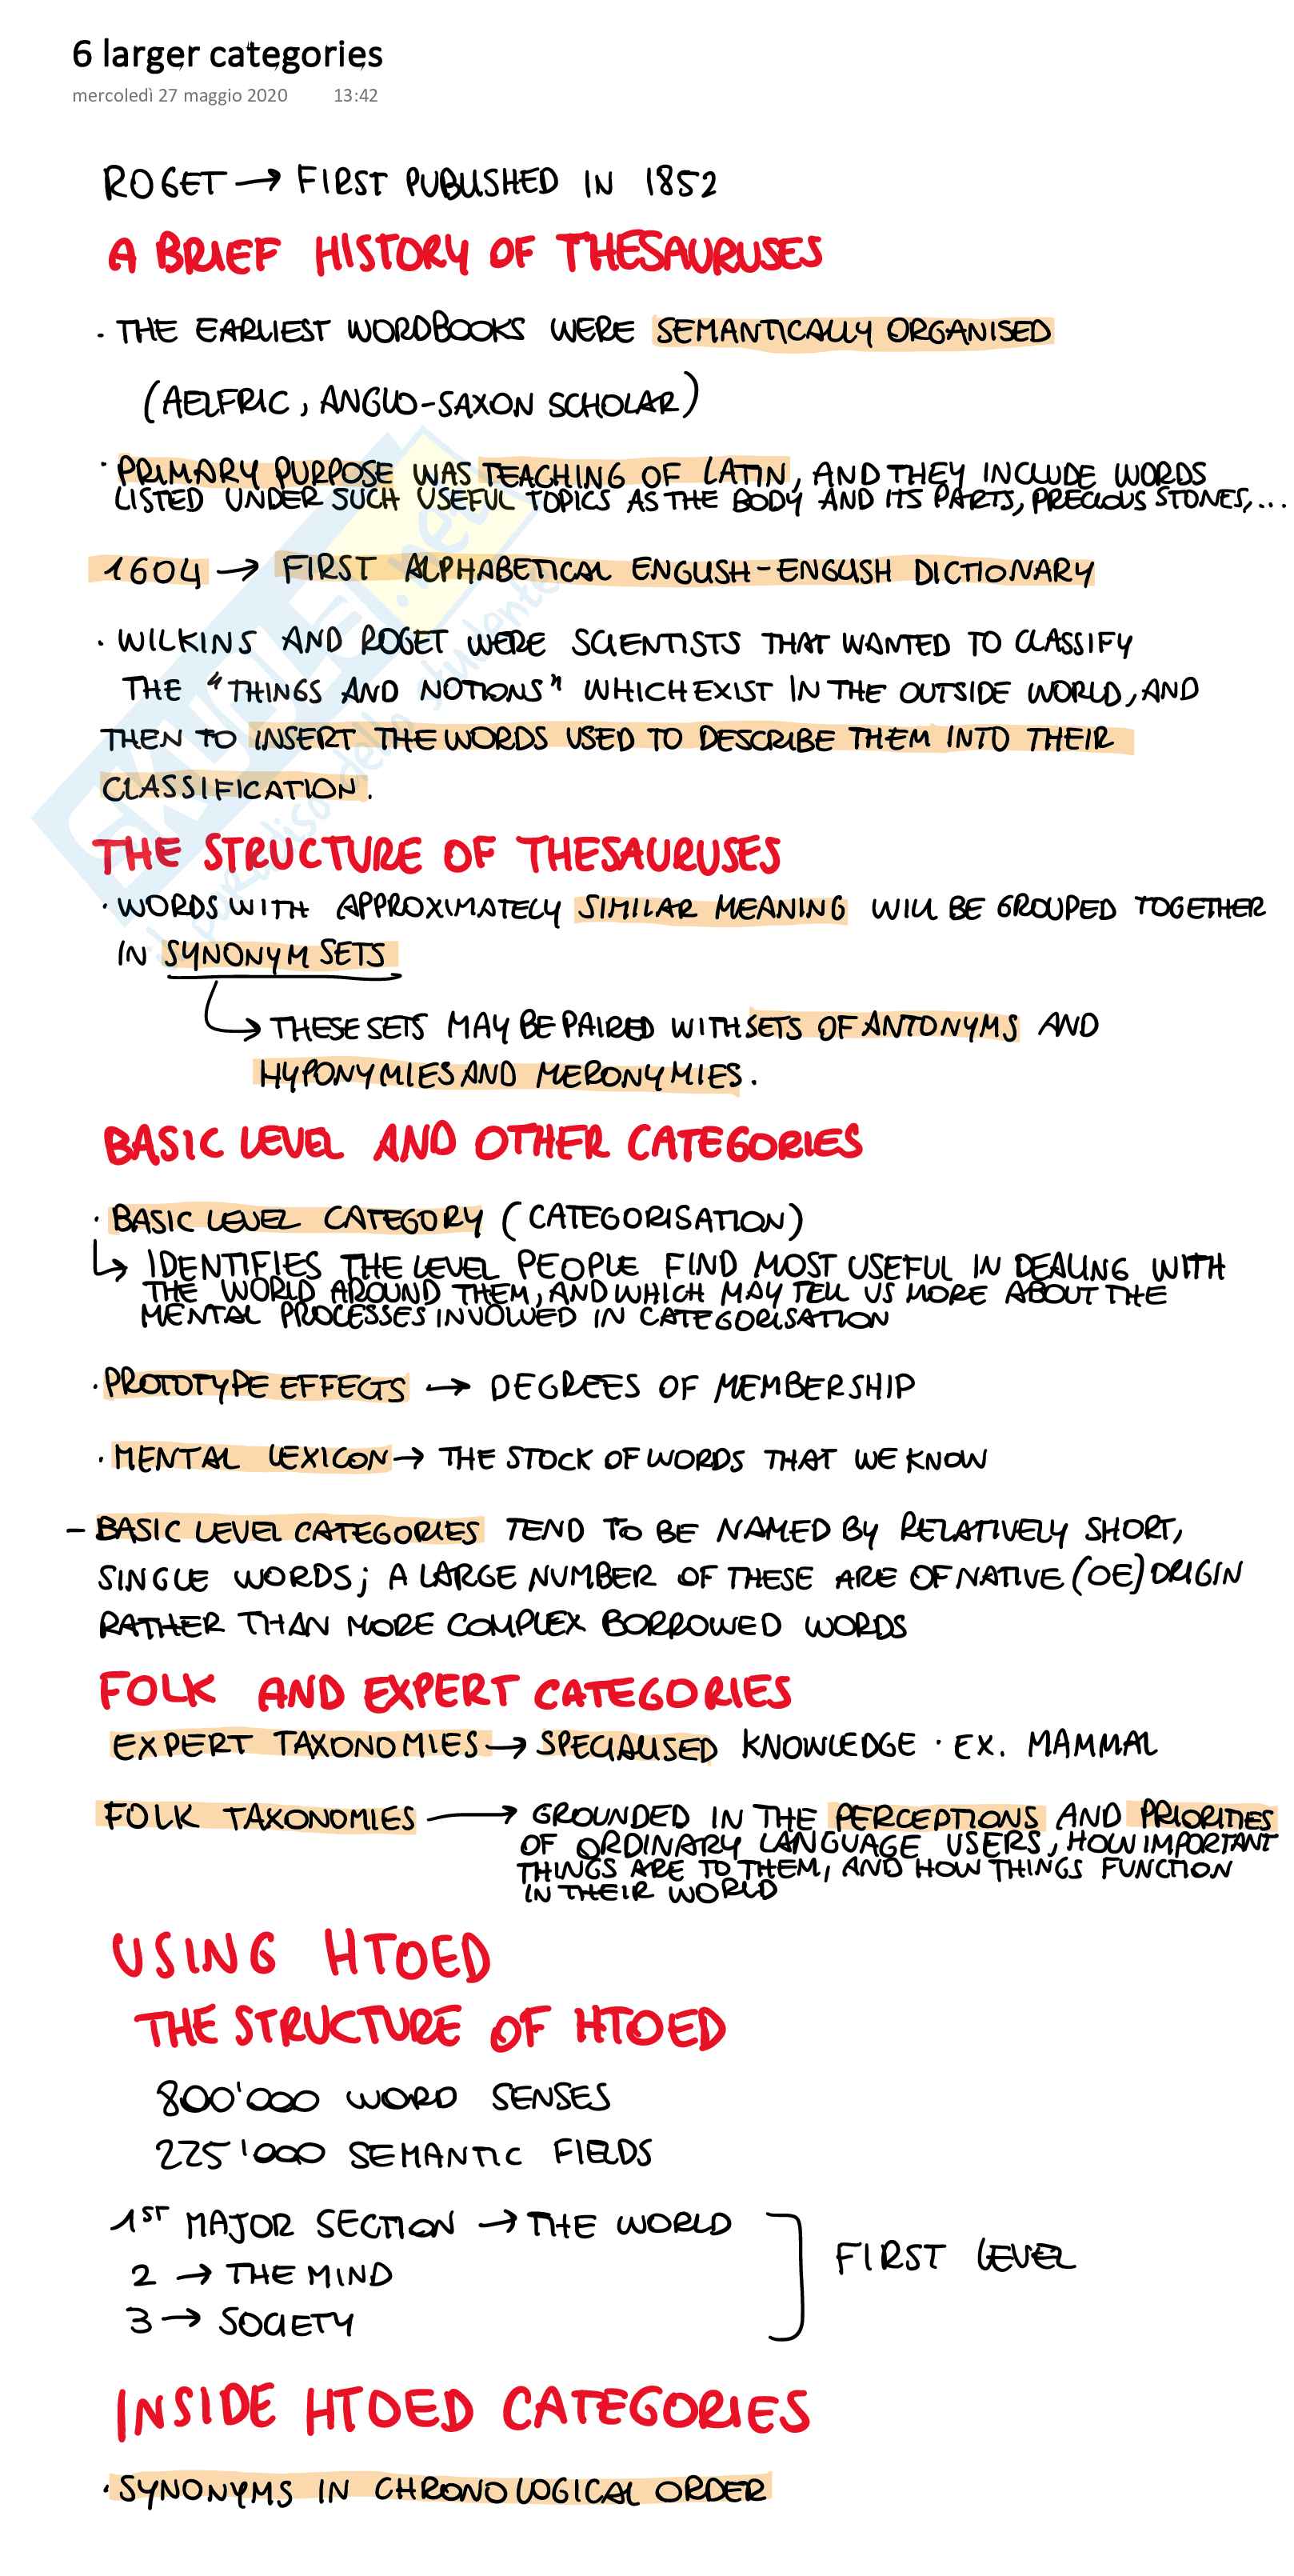 6 larger categories
mercoledì 27 maggio 2020 13:42
ROGET → FIRST PUBLISHED IN 1852
A BRIEF HISTORY OF THESAURUSES
· THE EARLIEST WORDBOOKS WERE SEMANTICALLY ORGANISED
(AELFRIC, ANGLO-SAXON SCHOLAR)
· PRIMARY PURPOSE WAS TEACHING OF LATIN, AND THEY INCLUDE WORDS
LISTED UNDER SUCH USEFUL TOPICS AS THE BODY AND ITS PARTS, PRECIOUS STONES,...
1604 → FIRST ALPHABETICAL ENGLISH-ENGLISH DICTIONARY
· WILKINS AND ROGET WERE SCIENTISTS THAT WANTED TO CLASSIFY
THE "THINGS AND NOTIONS" WHICH EXIST IN THE OUTSIDE WORLD, AND
THEN TO INSERT THE WORDS USED TO DESCRIBE THEM INTO THEIR
CLASSIFICATION.
THE STRUCTURE OF THESAURUSES
· WORDS WITH APPROXIMATELY SIMILAR MEANING WILL BE GROUPED TOGETHER
IN SYNONYM SETS
→ THESE SETS MAY BE PAIRED WITH SETS OF ANTONYMS AND
HYPONYMIES AND MERONYMIES.
BASIC LEVEL AND OTHER CATEGORIES
· BASIC LEVEL CATEGORY (CATEGORISATION)
↳ IDENTIFIES THE LEVEL PEOPLE FIND MOST USEFUL IN DEALING WITH
THE WORLD AROUND THEM, AND WHICH MAY TELL US MORE ABOUT THE
MENTAL PROCESSES INVOLVED IN CATEGORISATION
· PROTOTYPE EFFECTS → DEGREES OF MEMBERSHIP
· MENTAL LEXICON → THE STOCK OF WORDS THAT WE KNOW
- BASIC LEVEL CATEGORIES TEND TO BE NAMED BY RELATIVELY SHORT,
SINGLE WORDS; A LARGE NUMBER OF THESE ARE OF NATIVE (OE) ORIGIN
RATHER THAN MORE COMPLEX BORROWED WORDS
FOLK AND EXPERT CATEGORIES
EXPERT TAXONOMIES → SPECIALISED KNOWLEDGE · EX. MAMMAL
FOLK TAXONOMIES → GROUNDED IN THE PERCEPTIONS AND PRIORITIES
OF ORDINARY LANGUAGE USERS, HOW IMPORTANT
THINGS ARE TO THEM, AND HOW THINGS FUNCTION
IN THEIR WORLD
USING HTOED
THE STRUCTURE OF HTOED
800'000 WORD SENSES
225'000 SEMANTIC FIELDS
1ST MAJOR SECTION → THE WORLD
2 → THE MIND
FIRST LEVEL
3 → SOCIETY
INSIDE HTOED CATEGORIES
· SYNONYMS IN CHRONOLOGICAL ORDER
SKUOLA.net
il paradiso dello studente